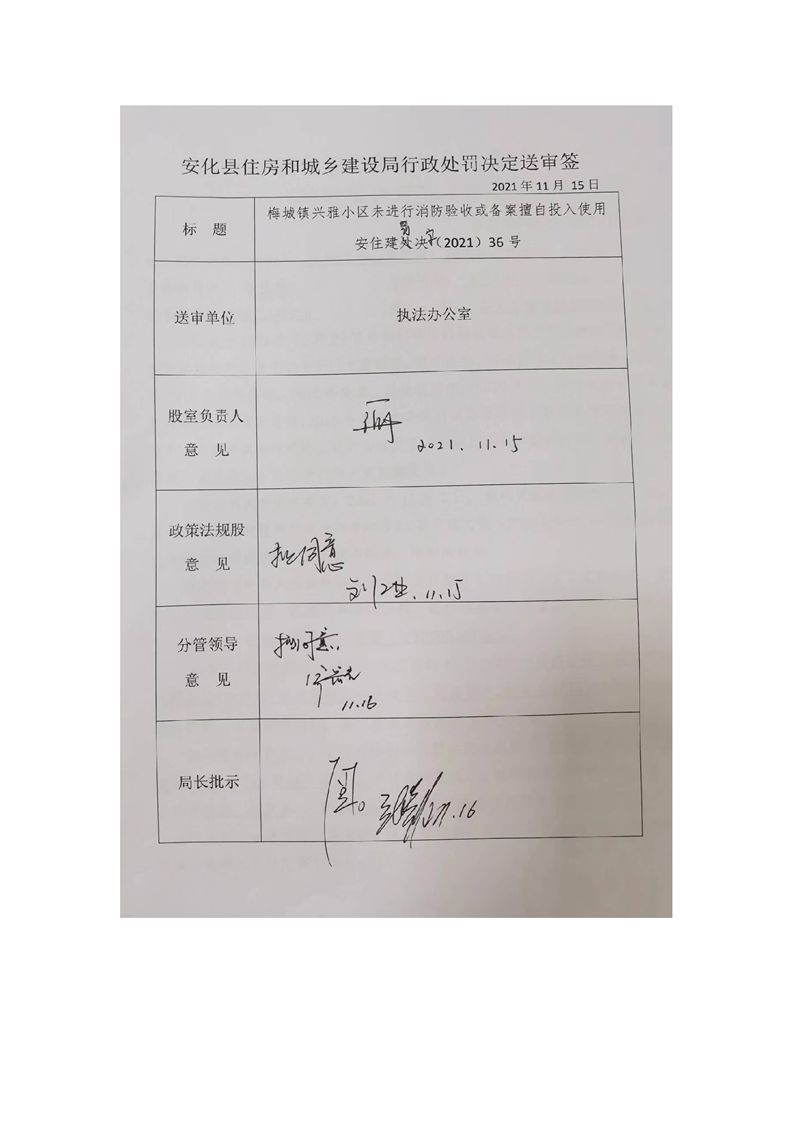 安化县住房和城乡建设局行政处罚决定送审签
2021年11月 15日
标 题
梅城镇兴雅小区未进行消防验收或备案擅自投入使用
安住建处罚决字(2021)36号
送审单位
执法办公室
股室负责人
意 见
2021.11.15
政策法规股
意 见
拟同意
11.15
分管领导
意 见
拟同意
11.16
局长批示
11.16